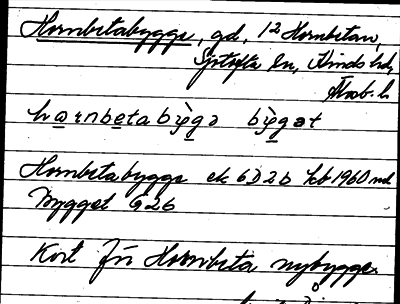 Hornbetabygge, gd, 12 Hornbetan,
Sn, Kinds hd,
Älvsb. l.
hornbeta bygə bygət
Hornbetabygge ek 6D2b kb 1960 nd
Bygget G26
Kort för Hornbeta nybygge.